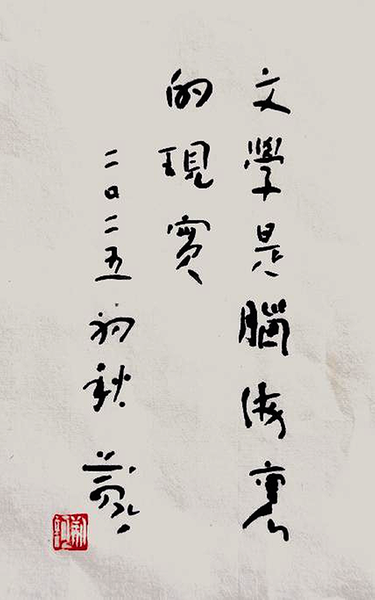 文學是腦海裏
的現實
二〇二五初秋